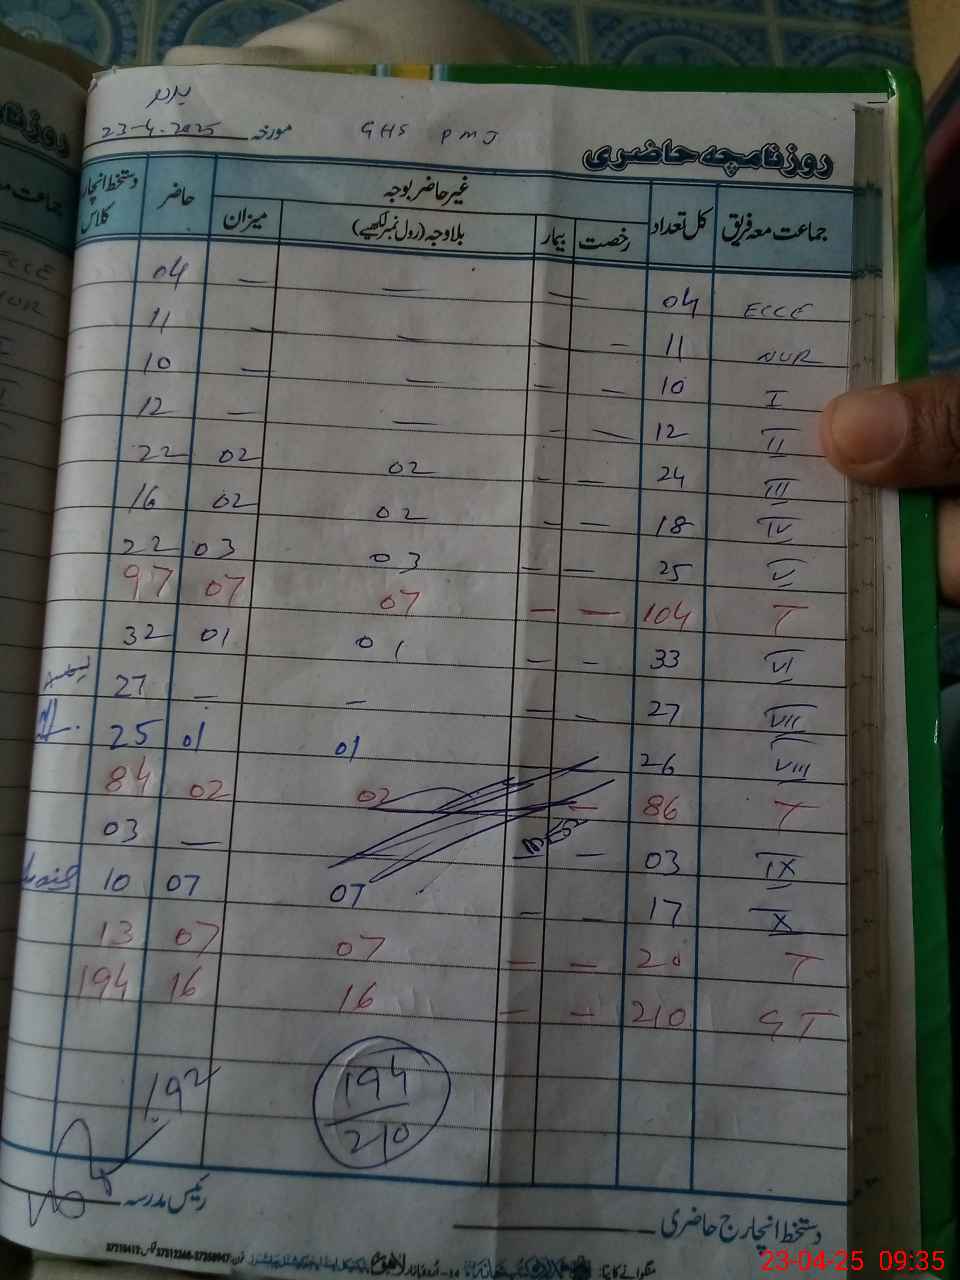 بدھ
روزنامچہ حاضری GHS PMJ مورخہ 23-4-2025
جماعت معہ فریق کل تعداد غیر حاضر بوجہ حاضر دستخط انچارج کلاس
رخصت بیمار بلاوجہ (رول نمبر لکھیے) میزان
ECCE 04 — — — — 04
NUR 11 — — — — 11
I 10 — — — — 10
II 12 — — — — 12
III 24 — — 02 02 22
IV 18 — — 02 02 16
V 25 — — 03 03 22
T 104 — — 07 07 97
VI 33 — — 01 01 32
VII 27 — — — — 27
VIII 26 01 01 25
T 86 — 02 02 84
IX 03 — — — 03
X 17 — — 07 07 10
T 20 — — 07 07 13
GT 210 — — 16 16 194
194
210
192
دستخط انچارج حاضری رئیس مدرسہ
23-04-25 09:35